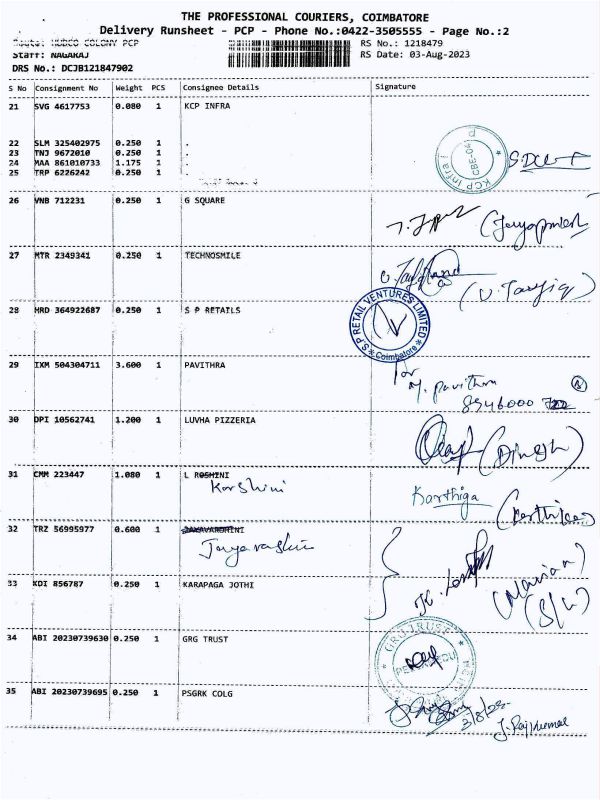 THE PROFESSIONAL COURIERS, COIMBATORE
Delivery Runsheet - PCP - Phone No.:0422-3505555 - Page No.:2
Route: HUDCO COLONY PCP RS No.: 1218479
Staff: NAGARAJ RS Date: 03-Aug-2023
DRS No.: DCJB121847902
S No Consignment No Weight PCS Consignee Details Signature
21 SVG 4617753 0.080 1 KCP INFRA
22 SLM 325402975 0.250 1 .
23 TNJ 9672010 0.250 1 .
24 MAA 861010733 1.175 1 .
25 TRP 6226242 0.250 1 .
KCP Infra CBE-04
26 VNB 712231 0.250 1 G SQUARE
27 MTR 2349341 0.250 1 TECHNOSMILE
(U. Tawfiq)
28 HRD 364922687 0.250 1 S P RETAILS
S.P RETAIL VENTURES LIMITED
* Coimbatore *
29 IXM 504304711 3.600 1 PAVITHRA
for
M. Pavithra
30 DPI 10562741 1.200 1 LUVHA PIZZERIA
(Dinesh)
31 CMM 223447 1.080 1 L ROSHINI
Karshini
Karthiga (Karthiga)
32 TRZ 56995977 0.600 1
33 KDI 856787 0.250 1 KARAPAGA JOTHI
34 ABI 20230739630 0.250 1 GRG TRUST
GRG TRUST
35 ABI 20230739695 0.250 1 PSGRK COLG
J. Rajkumar